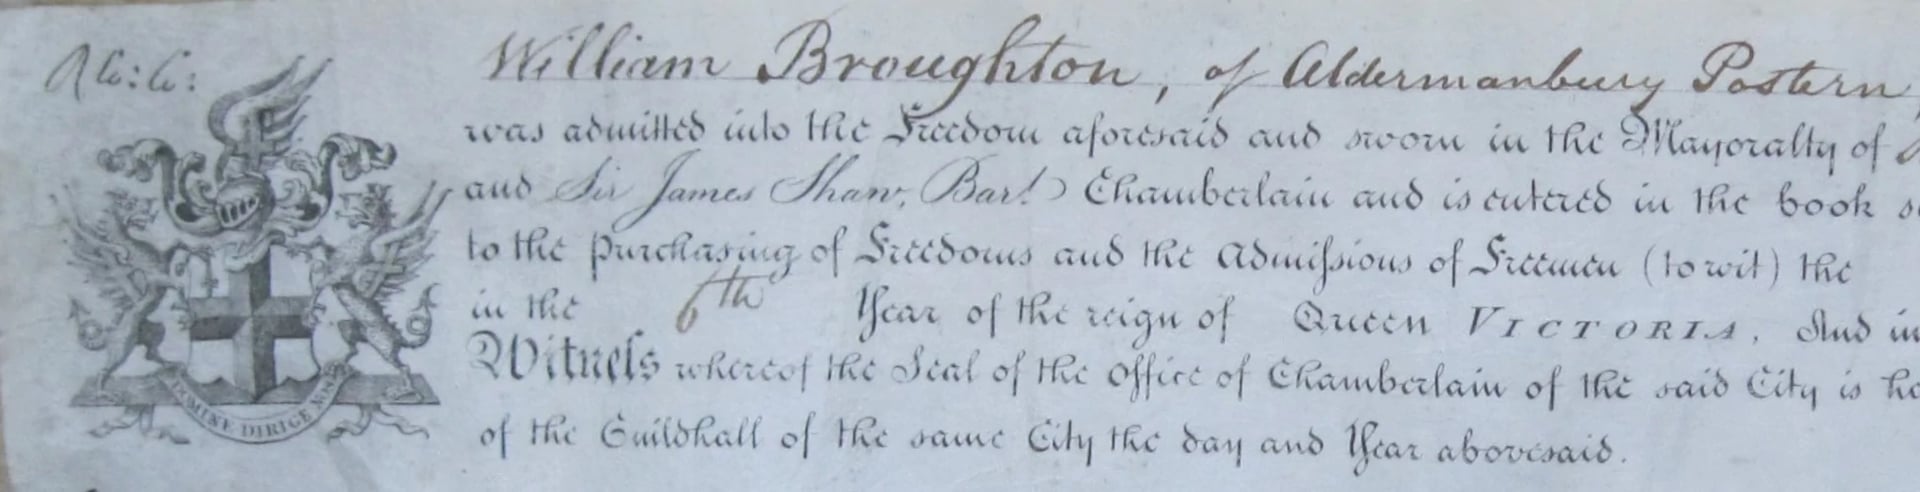 William Broughton, of Aldermanbury Postern,
was admitted into the Freedom aforesaid and sworn in the Mayoralty of
and Sir James Shaw, Bart. Chamberlain and is entered in the book
to the purchasing of Freedoms and the Admiſsions of Freemen (to wit) the
in the 6th Year of the reign of Queen VICTORIA. And in
Witneſs whereof the Seal of the Office of Chamberlain of the said City is
of the Guildhall of the same City the day and Year abovesaid.
DOMINE DIRIGE NOS